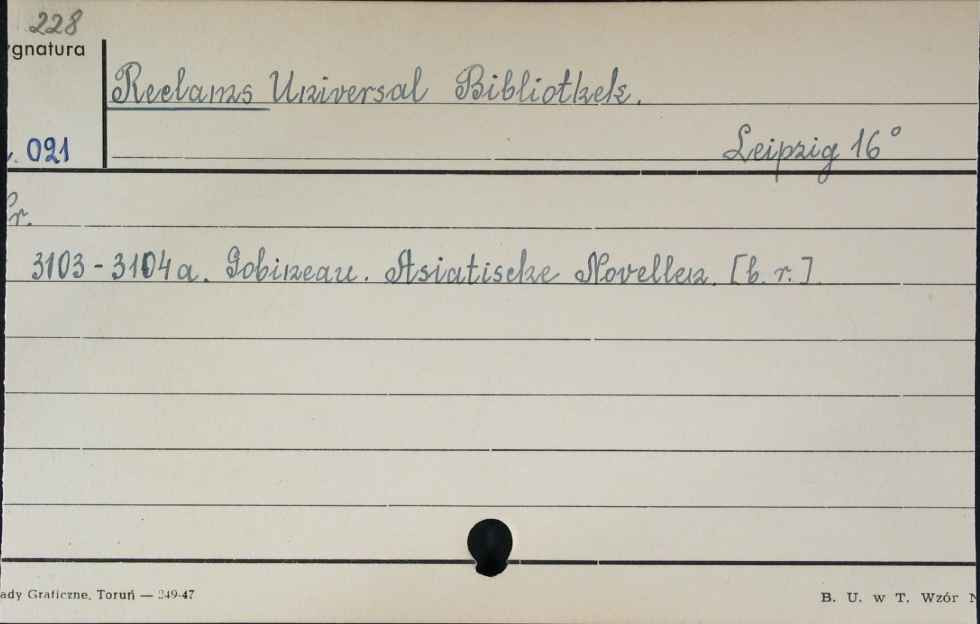 228
ygnatura
Reclams Universal Bibliothek.
. 021
Leipzig 16°
r.
3103 - 3104a. Gobineau. Asiatische Novellen. [b. r.]
ady Graficzne, Toruń — 249-47
B. U. w T. Wzór N